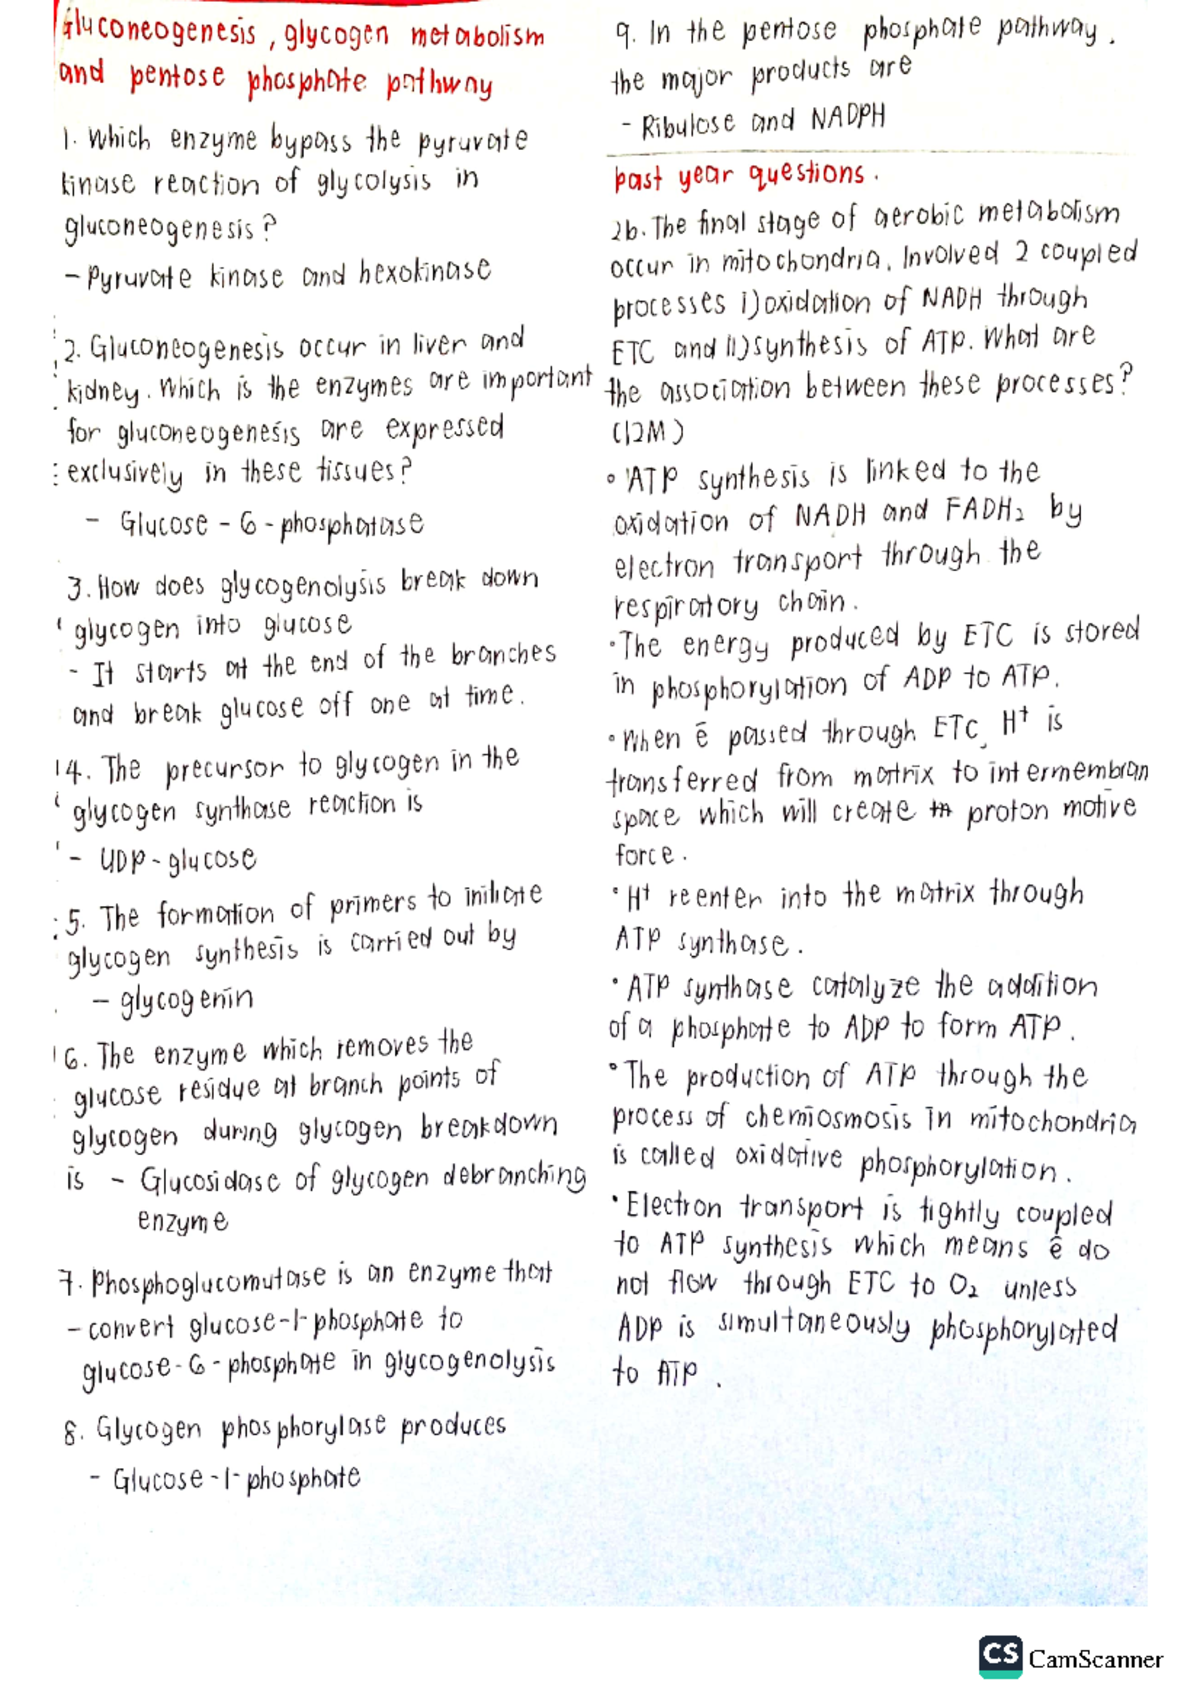 Gluconeogenesis, glycogen metabolism
and pentose phosphate pathway
1. Which enzyme bypass the pyruvate
kinase reaction of glycolysis in
gluconeogenesis?
- Pyruvate kinase and hexokinase
2. Gluconeogenesis occur in liver and
kidney. Which is the enzymes are important
for gluconeogenesis are expressed
exclusively in these tissues?
- Glucose-6-phosphatase
3. How does glycogenolysis break down
glycogen into glucose
- It starts at the end of the branches
and break glucose off one at time.
4. The precursor to glycogen in the
glycogen synthase reaction is
- UDP-glucose
5. The formation of primers to initiate
glycogen synthesis is carried out by
- glycogenin
6. The enzyme which removes the
glucose residue at branch points of
glycogen during glycogen breakdown
is - Glucosidase of glycogen debranching
enzyme
7. Phosphoglucomutase is an enzyme that
- convert glucose-1-phosphate to
glucose-6-phosphate in glycogenolysis
8. Glycogen phosphorylase produces
- Glucose-1-phosphate
9. In the pentose phosphate pathway,
the major products are
- Ribulose and NADPH
past year questions.
2b. The final stage of aerobic metabolism
occur in mitochondria. Involved 2 coupled
processes i) oxidation of NADH through
ETC and ii) synthesis of ATP. What are
the association between these processes?
(12M)
• ATP synthesis is linked to the
oxidation of NADH and FADH₂ by
electron transport through the
respiratory chain.
• The energy produced by ETC is stored
in phosphorylation of ADP to ATP.
• When ē passed through ETC, H⁺ is
transferred from matrix to intermembran
space which will create proton motive
force.
• H⁺ reenter into the matrix through
ATP synthase.
• ATP synthase catalyze the addition
of a phosphate to ADP to form ATP.
• The production of ATP through the
process of chemiosmosis in mitochondria
is called oxidative phosphorylation.
• Electron transport is tightly coupled
to ATP synthesis which means ē do
not flow through ETC to O₂ unless
ADP is simultaneously phosphorylated
to ATP.
CS CamScanner